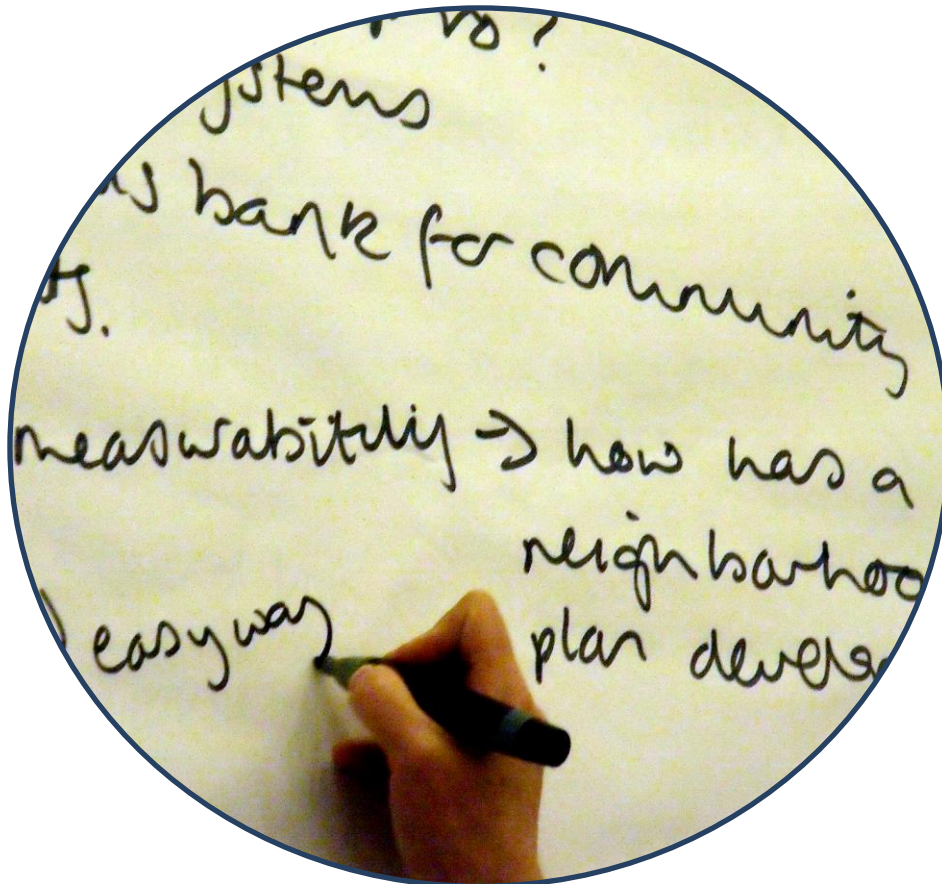 ?
ystems
bank for community
measurability → how has a
neighbourhoo
easy way plan develo